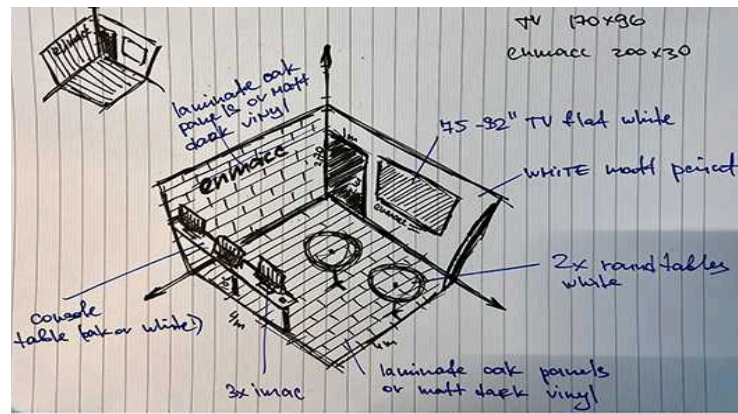 TV 170x96
enmacc 200x30
enmacc
laminate oak
panels or matt
dark vinyl
enmacc
1m
75-82" TV flat white
WHITE matt paint
enmacc
2x round tables
white
console
table (oak or white!)
3x imac
4m
4m
laminate oak panels
or matt dark vinyl